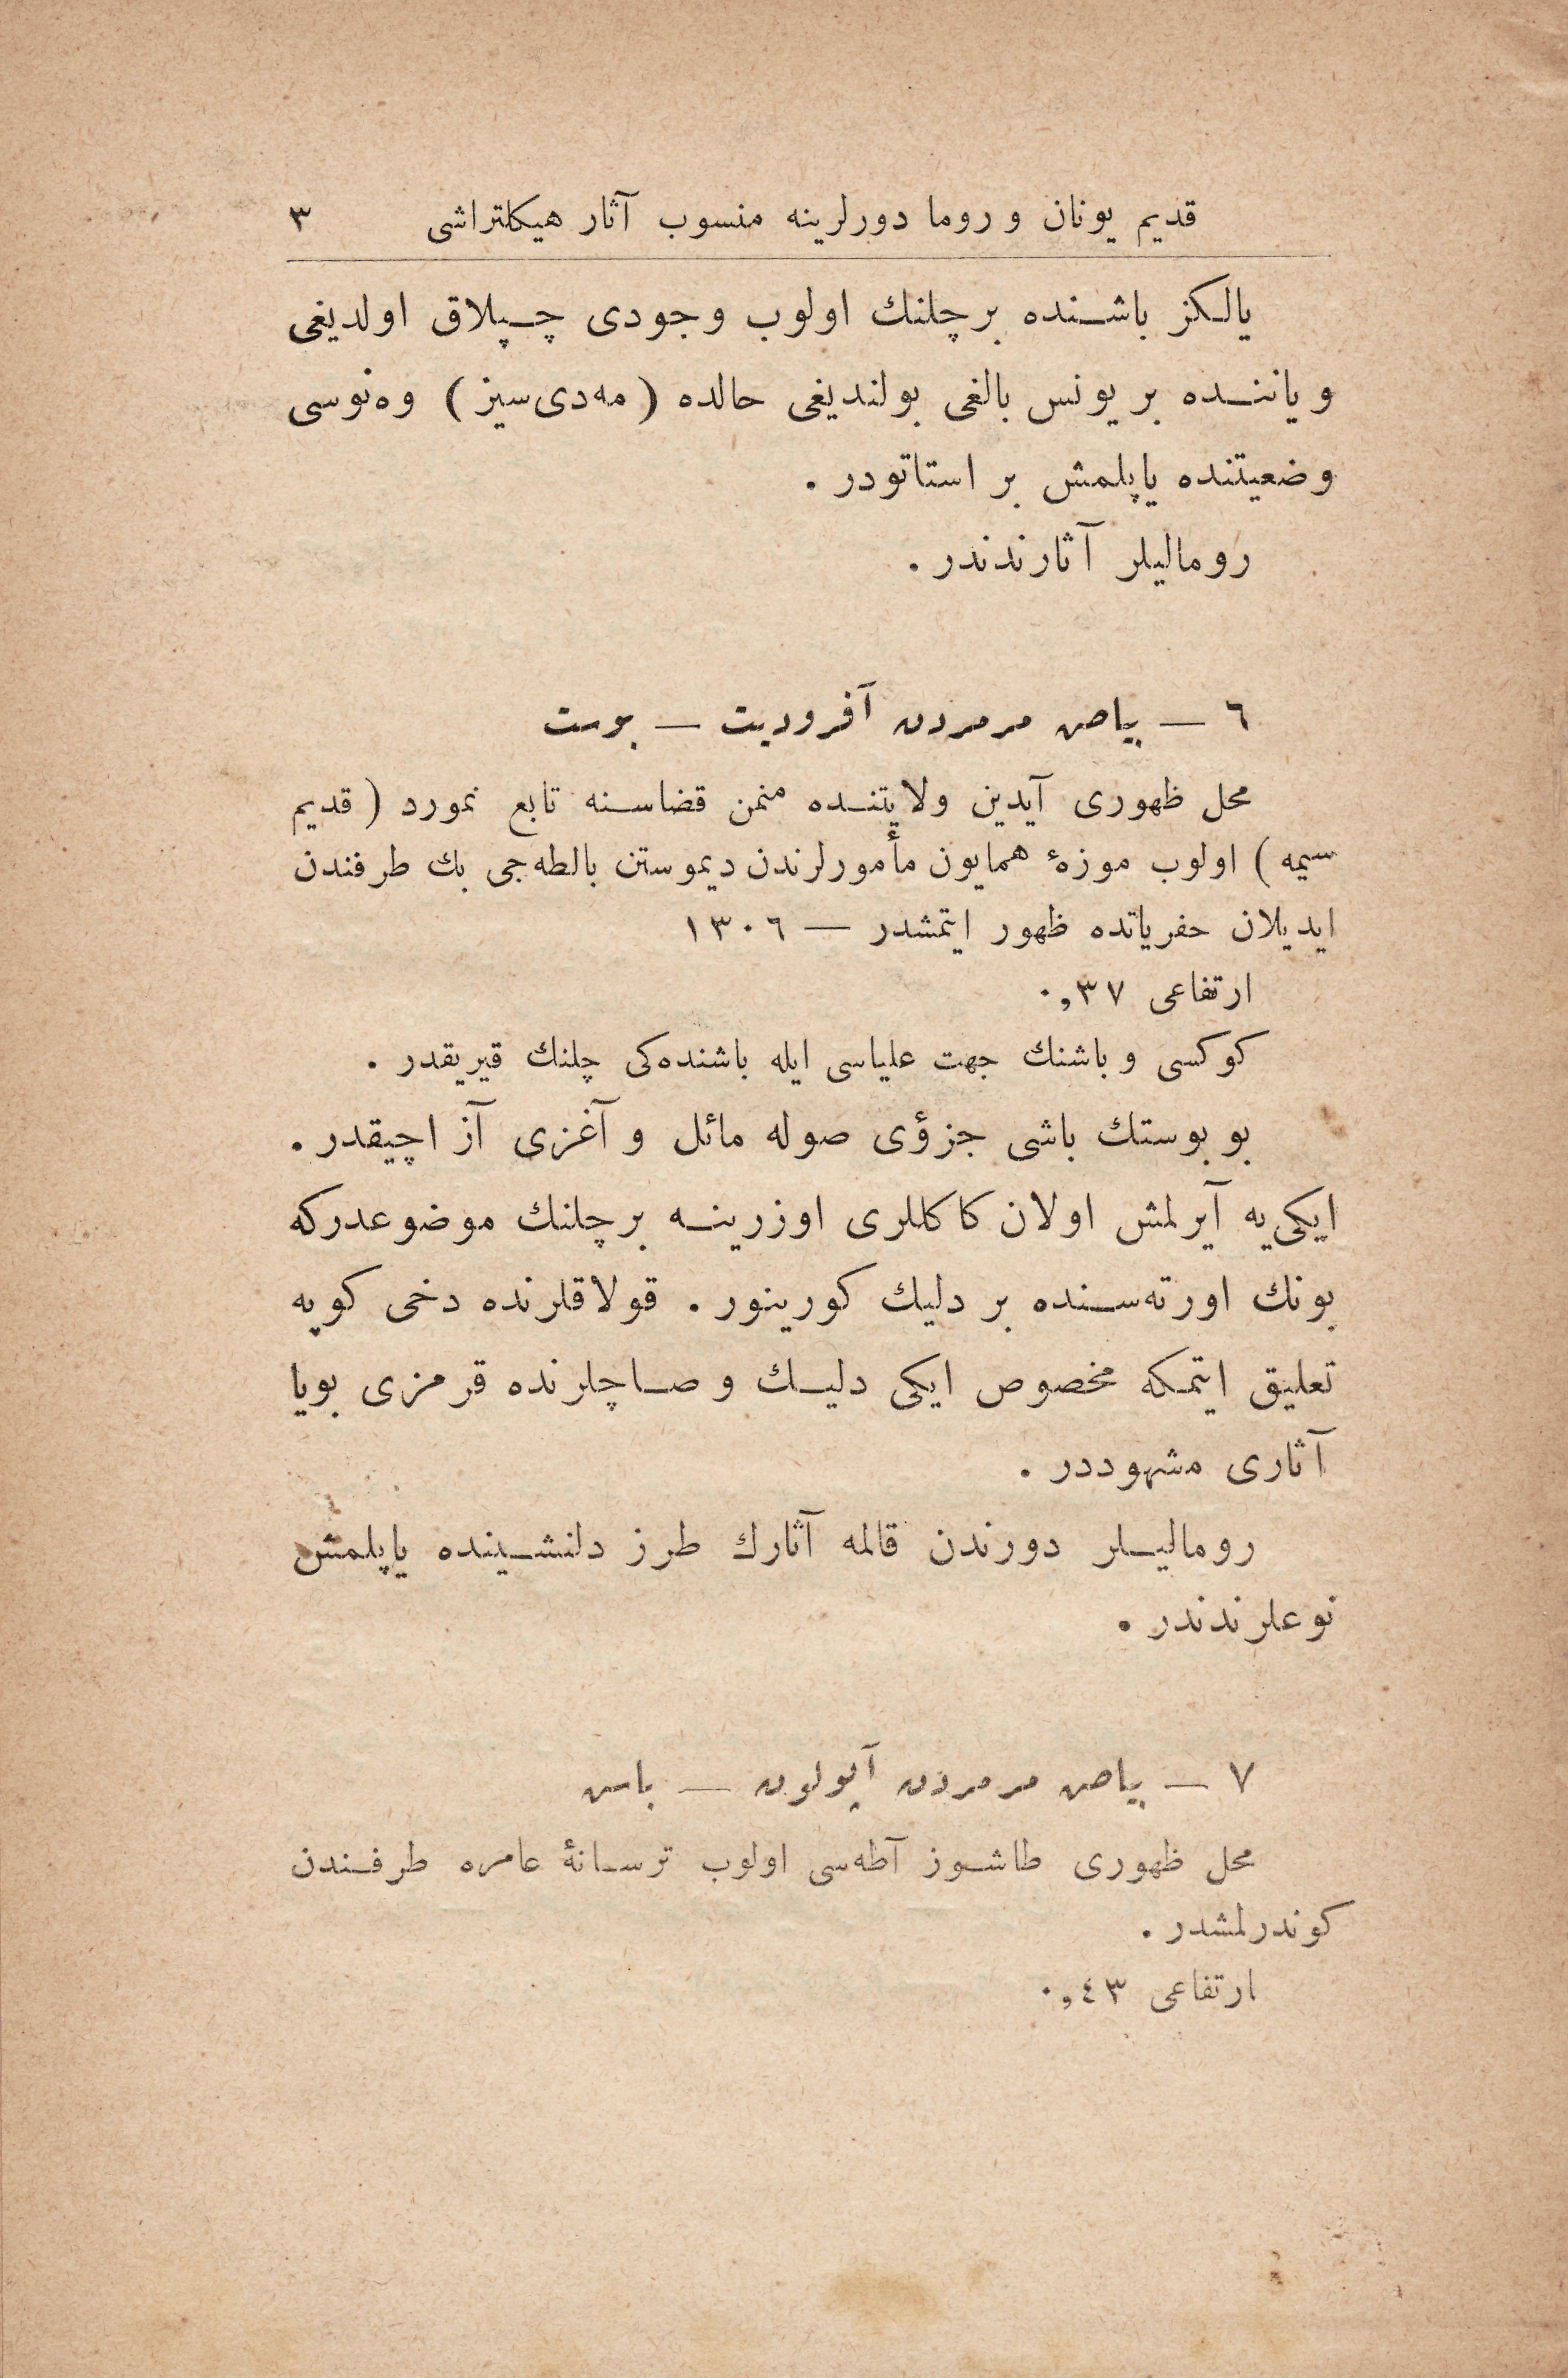 قديم يونان و روما دورلرينه منسوب آثار هيكلتراشى ٣
يالكز باشنده بر چلنك اولوب وجودى چپلاق اولديغى
و ياننده بر يونس بالغى بولنديغى حالده ( مه‌دى‌سيز ) وه‌نوسى
وضعيتنده ياپلمش بر استاتودر .
روماليلر آثارندندر .
٦ — بياض مرمردن آفروديت — بوست
محل ظهورى آيدين ولايتنده منمن قضاسنه تابع نمورد ( قديم
سيمه ) اولوب موزهٔ همايون مأمورلرندن ديموستن بالطه‌جى بك طرفندن
ايديلان حفرياتده ظهور ايتمشدر — ١٣٠٦
ارتفاعى ٠,٣٧
كوكسى و باشنك جهت علياسى ايله باشنده‌كى چلنك قيريقدر .
بو بوستك باشى جزؤى صوله مائل و آغزى آز اچيقدر .
ايكى‌يه آيرلمش اولان كاكللرى اوزرينه بر چلنك موضوعدركه
بونك اورته‌سنده بر دليك كورينور . قولاقلرنده دخى كوپه
تعليق ايتمكه مخصوص ايكى دليك و صاچلرنده قرمزى بويا
آثارى مشهوددر .
روماليلر دورندن قالمه آثارك طرز دلنشينده ياپلمش
نوعلرندندر .
٧ — بياض مرمردن آپولون — باش
محل ظهورى طاشوز آطه‌سى اولوب ترسانهٔ عامره طرفندن
كوندرلمشدر .
ارتفاعى ٠,٤٣